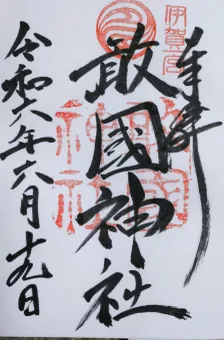 奉拝
伊賀一宮
敢國神社
令和六年六月十九日